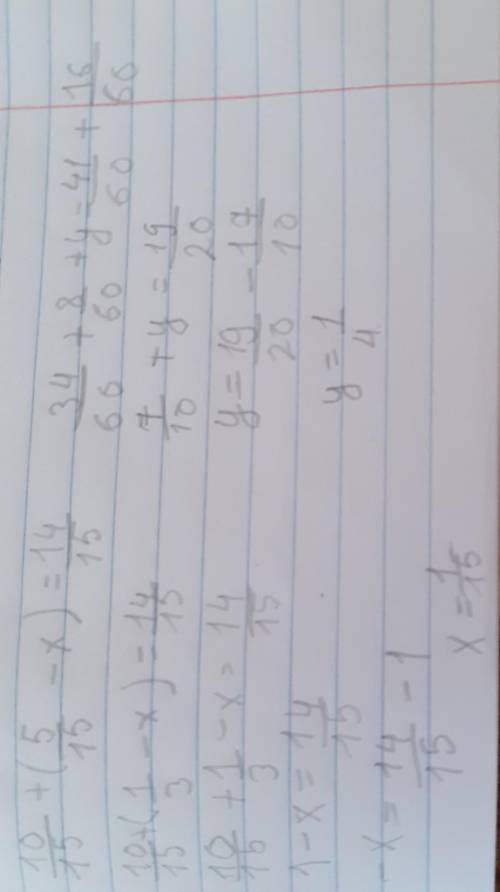 10/15 + (5/15 - x) = 14/15
10/15 + (1/3 - x) = 14/15
10/15 + 1/3 - x = 14/15
1 - x = 14/15
- x = 14/15 - 1
x = 1/15
34/60 + 8/60 + y = 41/60 + 16/60
7/10 + y = 19/20
y = 19/20 - 17/10
y = 1/4